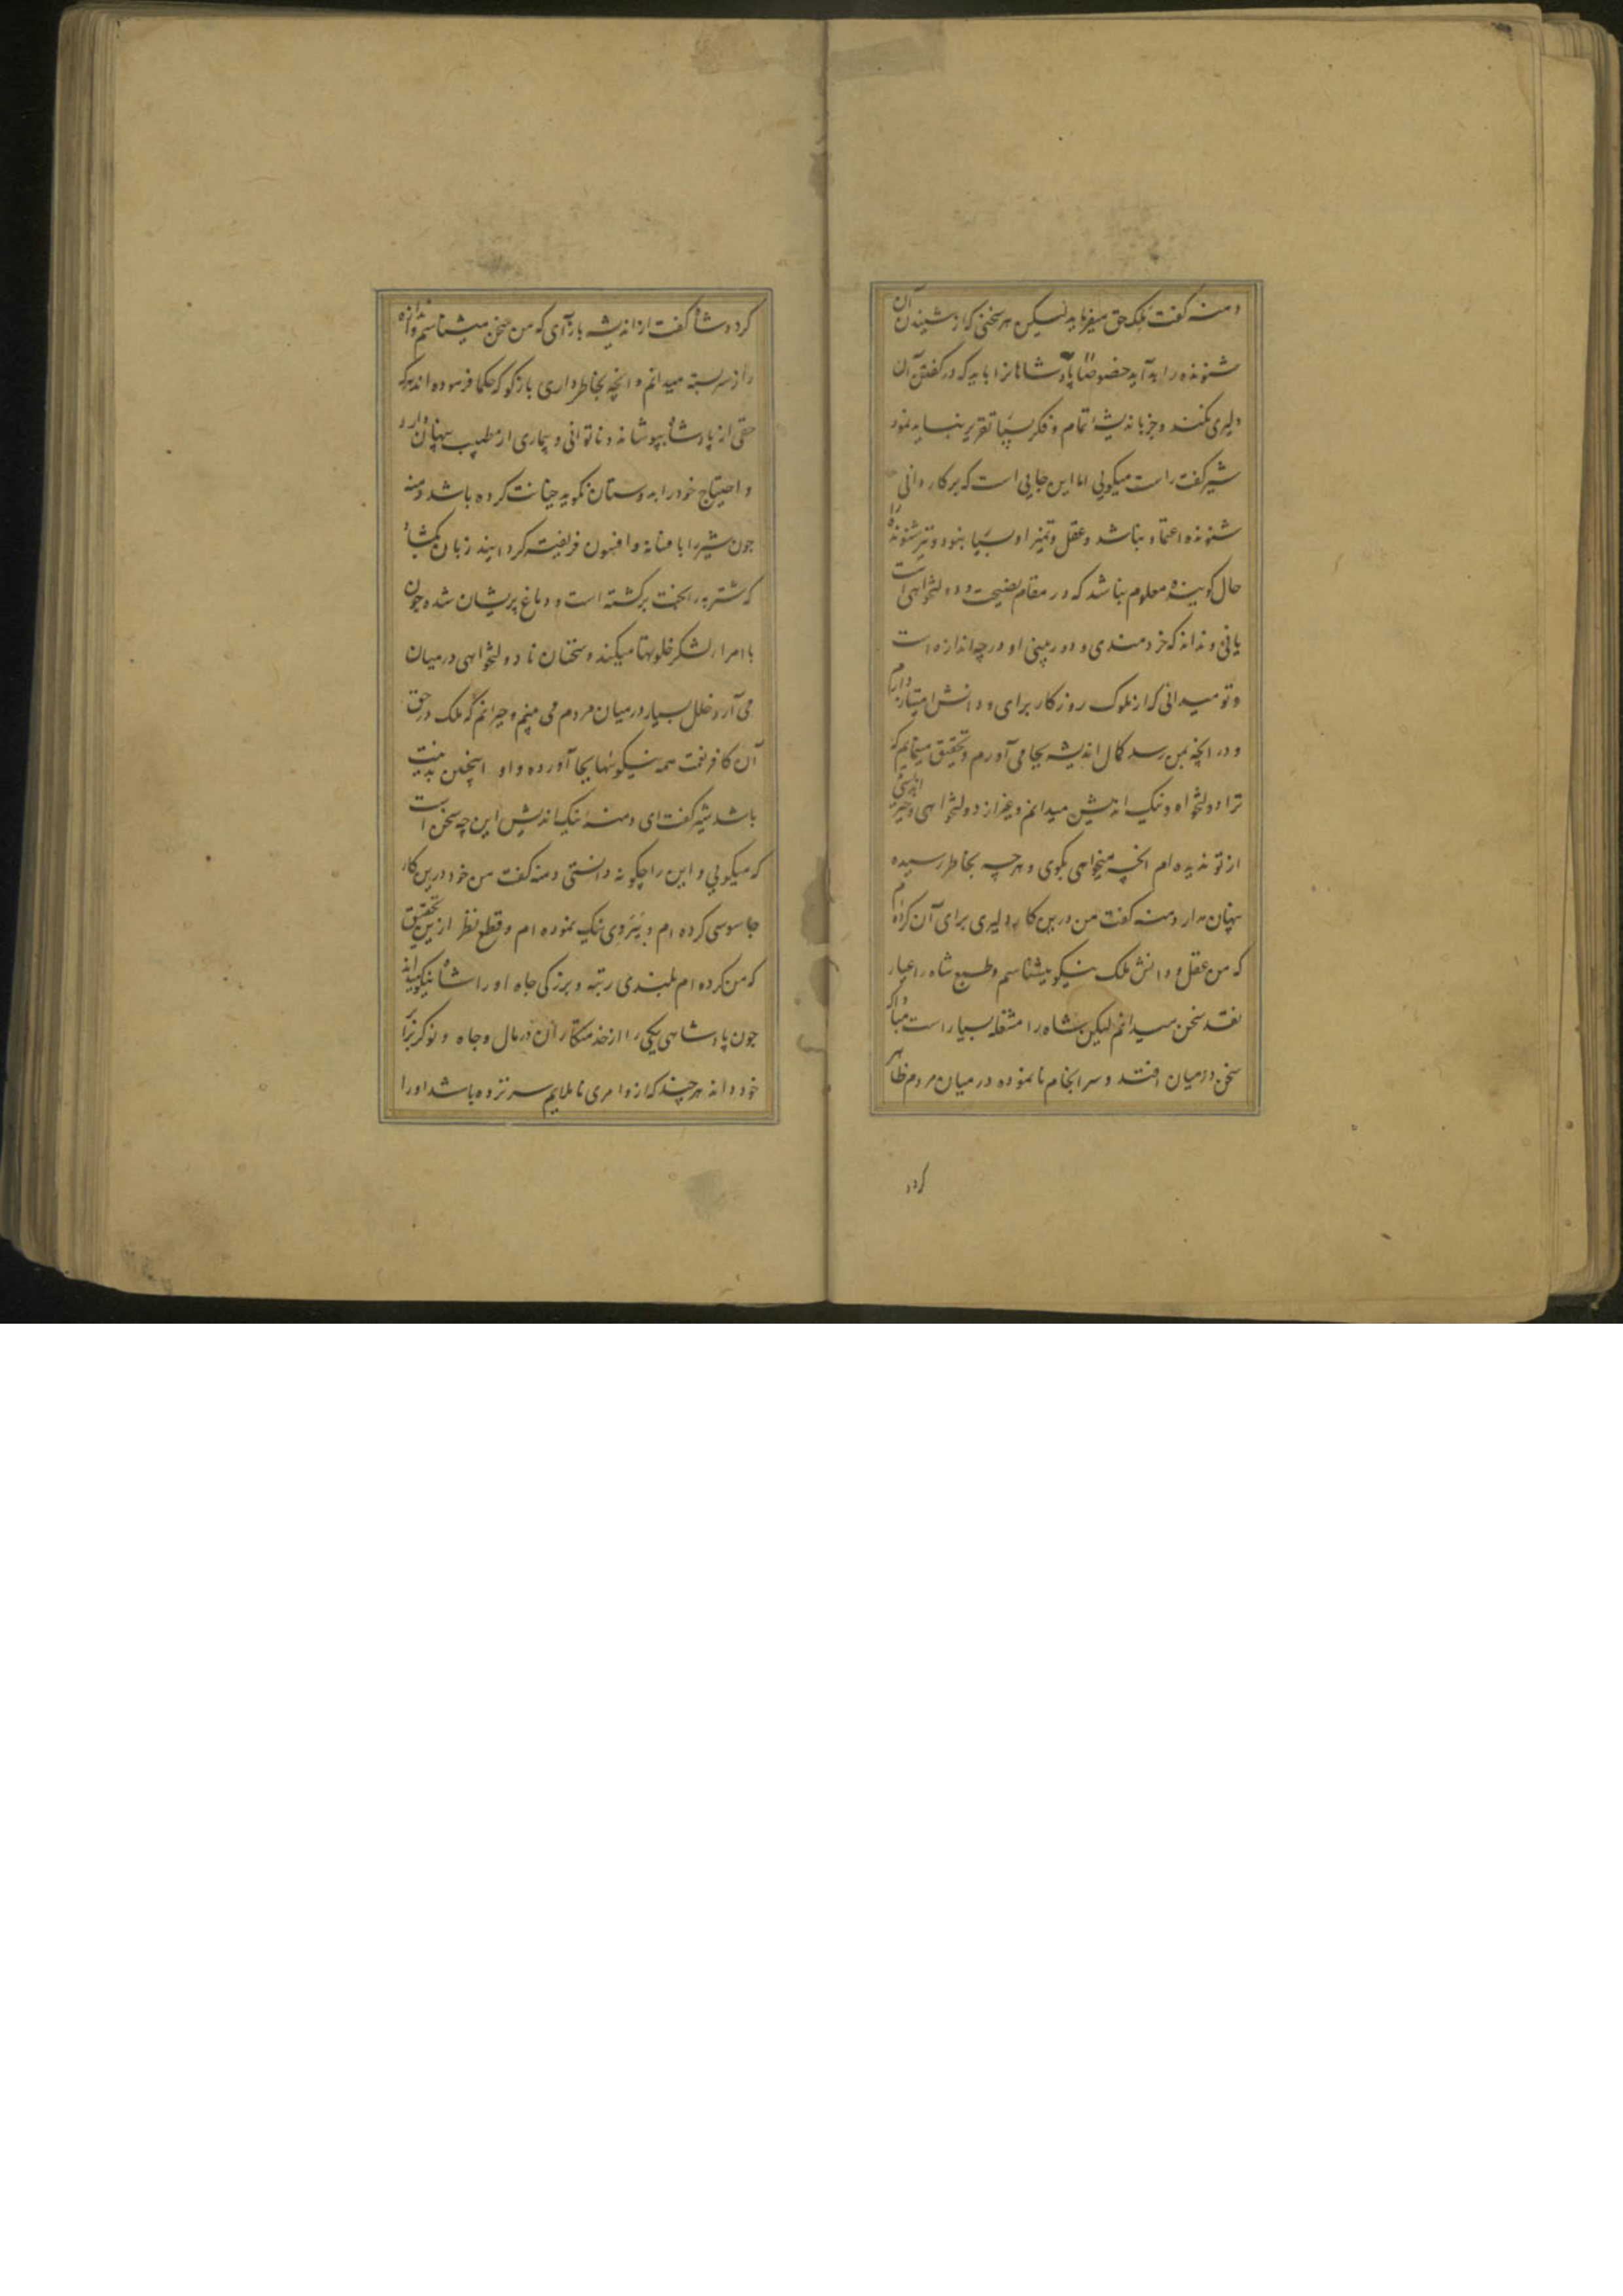 دمنه گفت ملک حق میفرماید لیکن هر سخنی که از شنیدن آن
شنونده را بد آید خصوصًا پادشاهانرا باید که در گفتن آن
دلیری نکند و جز باندیشۀ تمام و فکر بسیار تقریر ننماید نمود
شیر گفت راست میکویی اما این جایی است که بر کاردانی
شنونده اعتماد نباشد و عقل و تمیز او بسیار نبود و نیز شنونده را
حال کوینده معلوم نباشد که در مقام نصیحت و دولتخواهی است
یا نی و نداند که خردمندی و دوربینی او در چه اندازه است
و تو میدانی که از ملوک روزکار برای و دانش امتیاز دارم
و در انچه بمن رسد کمال اندیشه بجا می آورم و تحقیق مینمایم که
ترا دولتخواه و نیک اندیش میدانم و بغیر از دولتخواهی و خیر اندیشی
از تو ندیده ام انچه میخواهی بکوی و هر چه بخاطر رسیده
پنهان مدار دمنه گفت من درین کار دلیری برای آن کرده ام
که من عقل و دانش ملک نیکو میشناسم و طبع شاه را عیار
نقد سخن میدانم لیکن شاه را مشغله بسیار است مبادا که
سخن در میان افتد و سر انجام نا نموده در میان مردم ظاهر
کردد
کردد شاه گفت از اندیشه باز آی که من سخن میشناسم و اندازه
راز سربسته میدانم و انچه بخاطر داری بازکو که حکما فرموده اند هر که
حقی از پادشاه بپوشاند و ناتوانی و بیماری از طبیب پنهان دارد
و احتیاج خود را بدوستان نکوید خیانت کرده باشد دمنه
چون شیر را بافسانه و افسون فریفته کردانید زبان بکشاد
که شتربه را بخت برکشته است و دماغ پریشان شده چون
با امرا لشکر خلوتها میکند و سخنان نا دولتخواهی در میان
می آرد خلل بسیار در میان مردم می بینم و حیرانم که ملک در حق
آن کافر نعمت همه نیکوئیها بجا آورده و او اینچنین بد نیت
باشد شیر گفت ای دمنه نیک اندیش این چه سخن است
که میکویی و این را چکونه دانستی دمنه گفت من خود درین کار
جاسوسی کرده ام و پیروی نیک نموده ام و قطع نظر ازین تحقیق
که من کرده ام بلندی رتبه و بزرکی جاه او را شاه نیکو میداند
چون پادشاهی یکی را از خدمتکاران در مال و جاه و نوکر برابر
خود داند هر چند که ازو امری نا ملایم سر نزده باشد او را